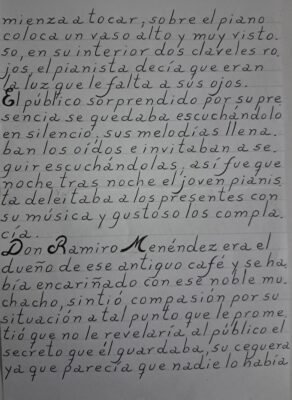 mienza a tocar, sobre el piano
coloca un vaso alto y muy visto.
so, en su interior dos claveles ro.
jos, el pianista decía que eran
la luz que le falta a sus ojos.
El público sorprendido por su pre
sencia se quedaba escuchándolo
en silencio. sus melodías llena.
ban los oídos e invitaban a se.
guir escuchándolas, así fue que
noche tras noche el joven pianis
ta deleitaba a los presentes con
su música y gustoso los compla.
cía.
Don Ramiro Menéndez era el
dueño de ese antiguo café y se ha.
bía encariñado con ese noble mu.
chacho, sintió compasión por su
situación a tal punto que le prome.
tió que no le revelaría al público el
secreto que él guardaba, su ceguera
ya que parecía que nadie lo había